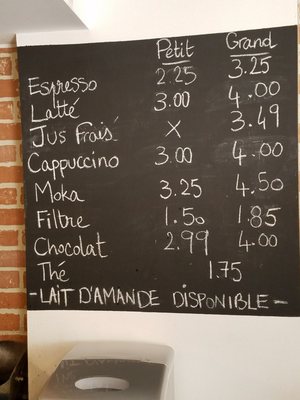 Petit Grand
Espresso 2.25 3.25
Latté 3.00 4.00
Jus Frais X 3.49
Cappuccino 3.00 4.00
Moka 3.25 4.50
Filtre 1.50 1.85
Chocolat 2.99 4.00
Thé 1.75
- LAIT D'AMANDE DISPONIBLE -